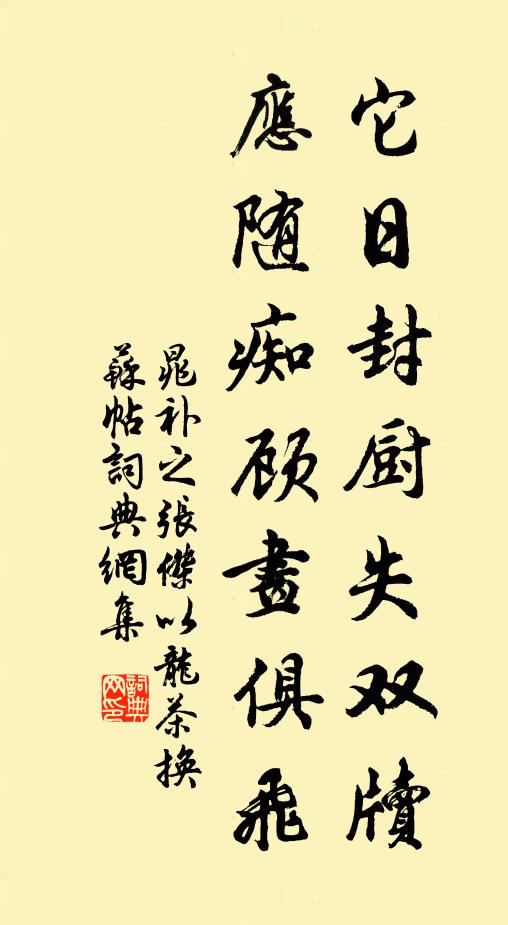 它日封厨失双牘
應随痴顾畫俱飛
晁补之張傑以龍茶換
蘇帖詞典網集
詞典
网印